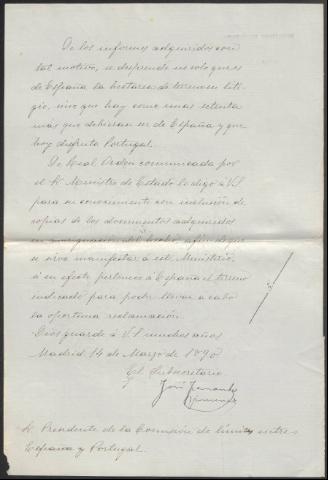 De los informes adquiridos con
tal motivo, se desprende no solo que es
de España la hectarea de terreno en liti-
gio, sino que hay como unas setenta
más que debieran ser de España y que
hoy disfruta Portugal.
De Real Orden comunicada por
el Sr. Ministro de Estado lo digo á V.S.
para su conocimiento con inclusión de
copias de los documentos adquiridos
en averiguación del hecho, a fin de que
se sirva manifestar á este Ministerio
si en efecto pertenece á España el terreno
indicado para poder llevar a cabo
la oportuna reclamación.
Dios guarde á V.S. muchos años
Madrid 14 de Marzo de 1890
El Subsecretario
José
Sr. Presidente de la Comisión de límites entre
España y Portugal.